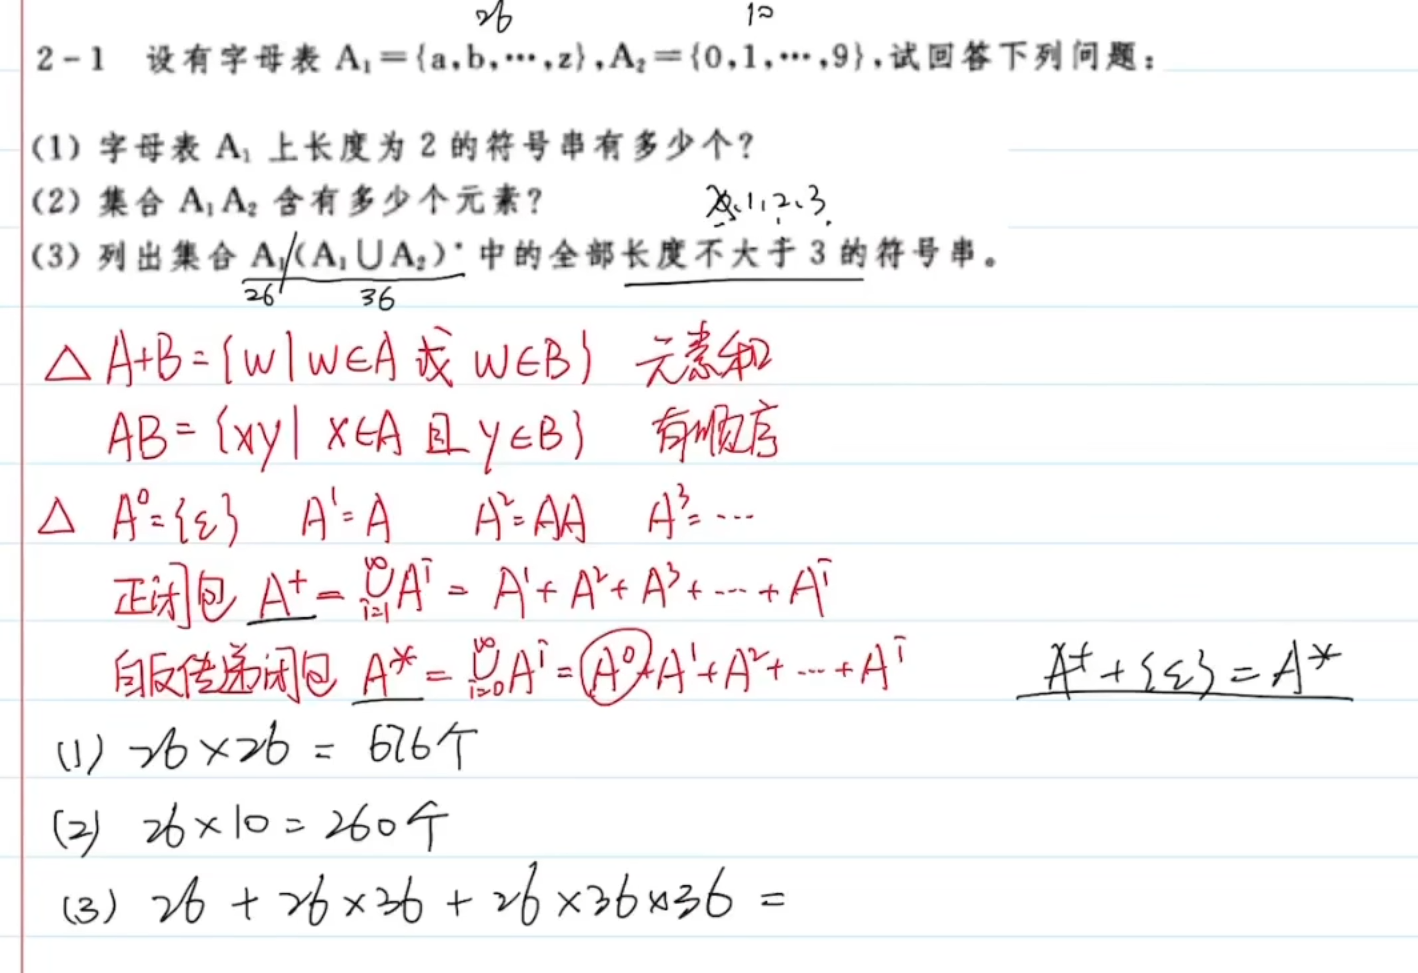 26 10
2-1 设有字母表 A₁={a,b,…,z},A₂={0,1,…,9},试回答下列问题:
(1) 字母表 A₁ 上长度为 2 的符号串有多少个?
(2) 集合 A₁A₂ 含有多少个元素?
1,2,3
(3) 列出集合 A₁(A₁∪A₂)* 中的全部长度不大于 3 的符号串。
26 36
△ A+B={w|w∈A 或 w∈B} 元素和
AB={xy|x∈A 且 y∈B} 有顺序
△ A⁰={ε} A¹=A A²=AA A³=…
正闭包 A⁺=∞∪i=1 Aⁱ=A¹+A²+A³+…+Aⁱ
自反传递闭包 A*=∞∪i=0 Aⁱ=A⁰+A¹+A²+…+Aⁱ A⁺+{ε}=A*
(1) 26×26=676个
(2) 26×10=260个
(3) 26+26×36+26×36×36=